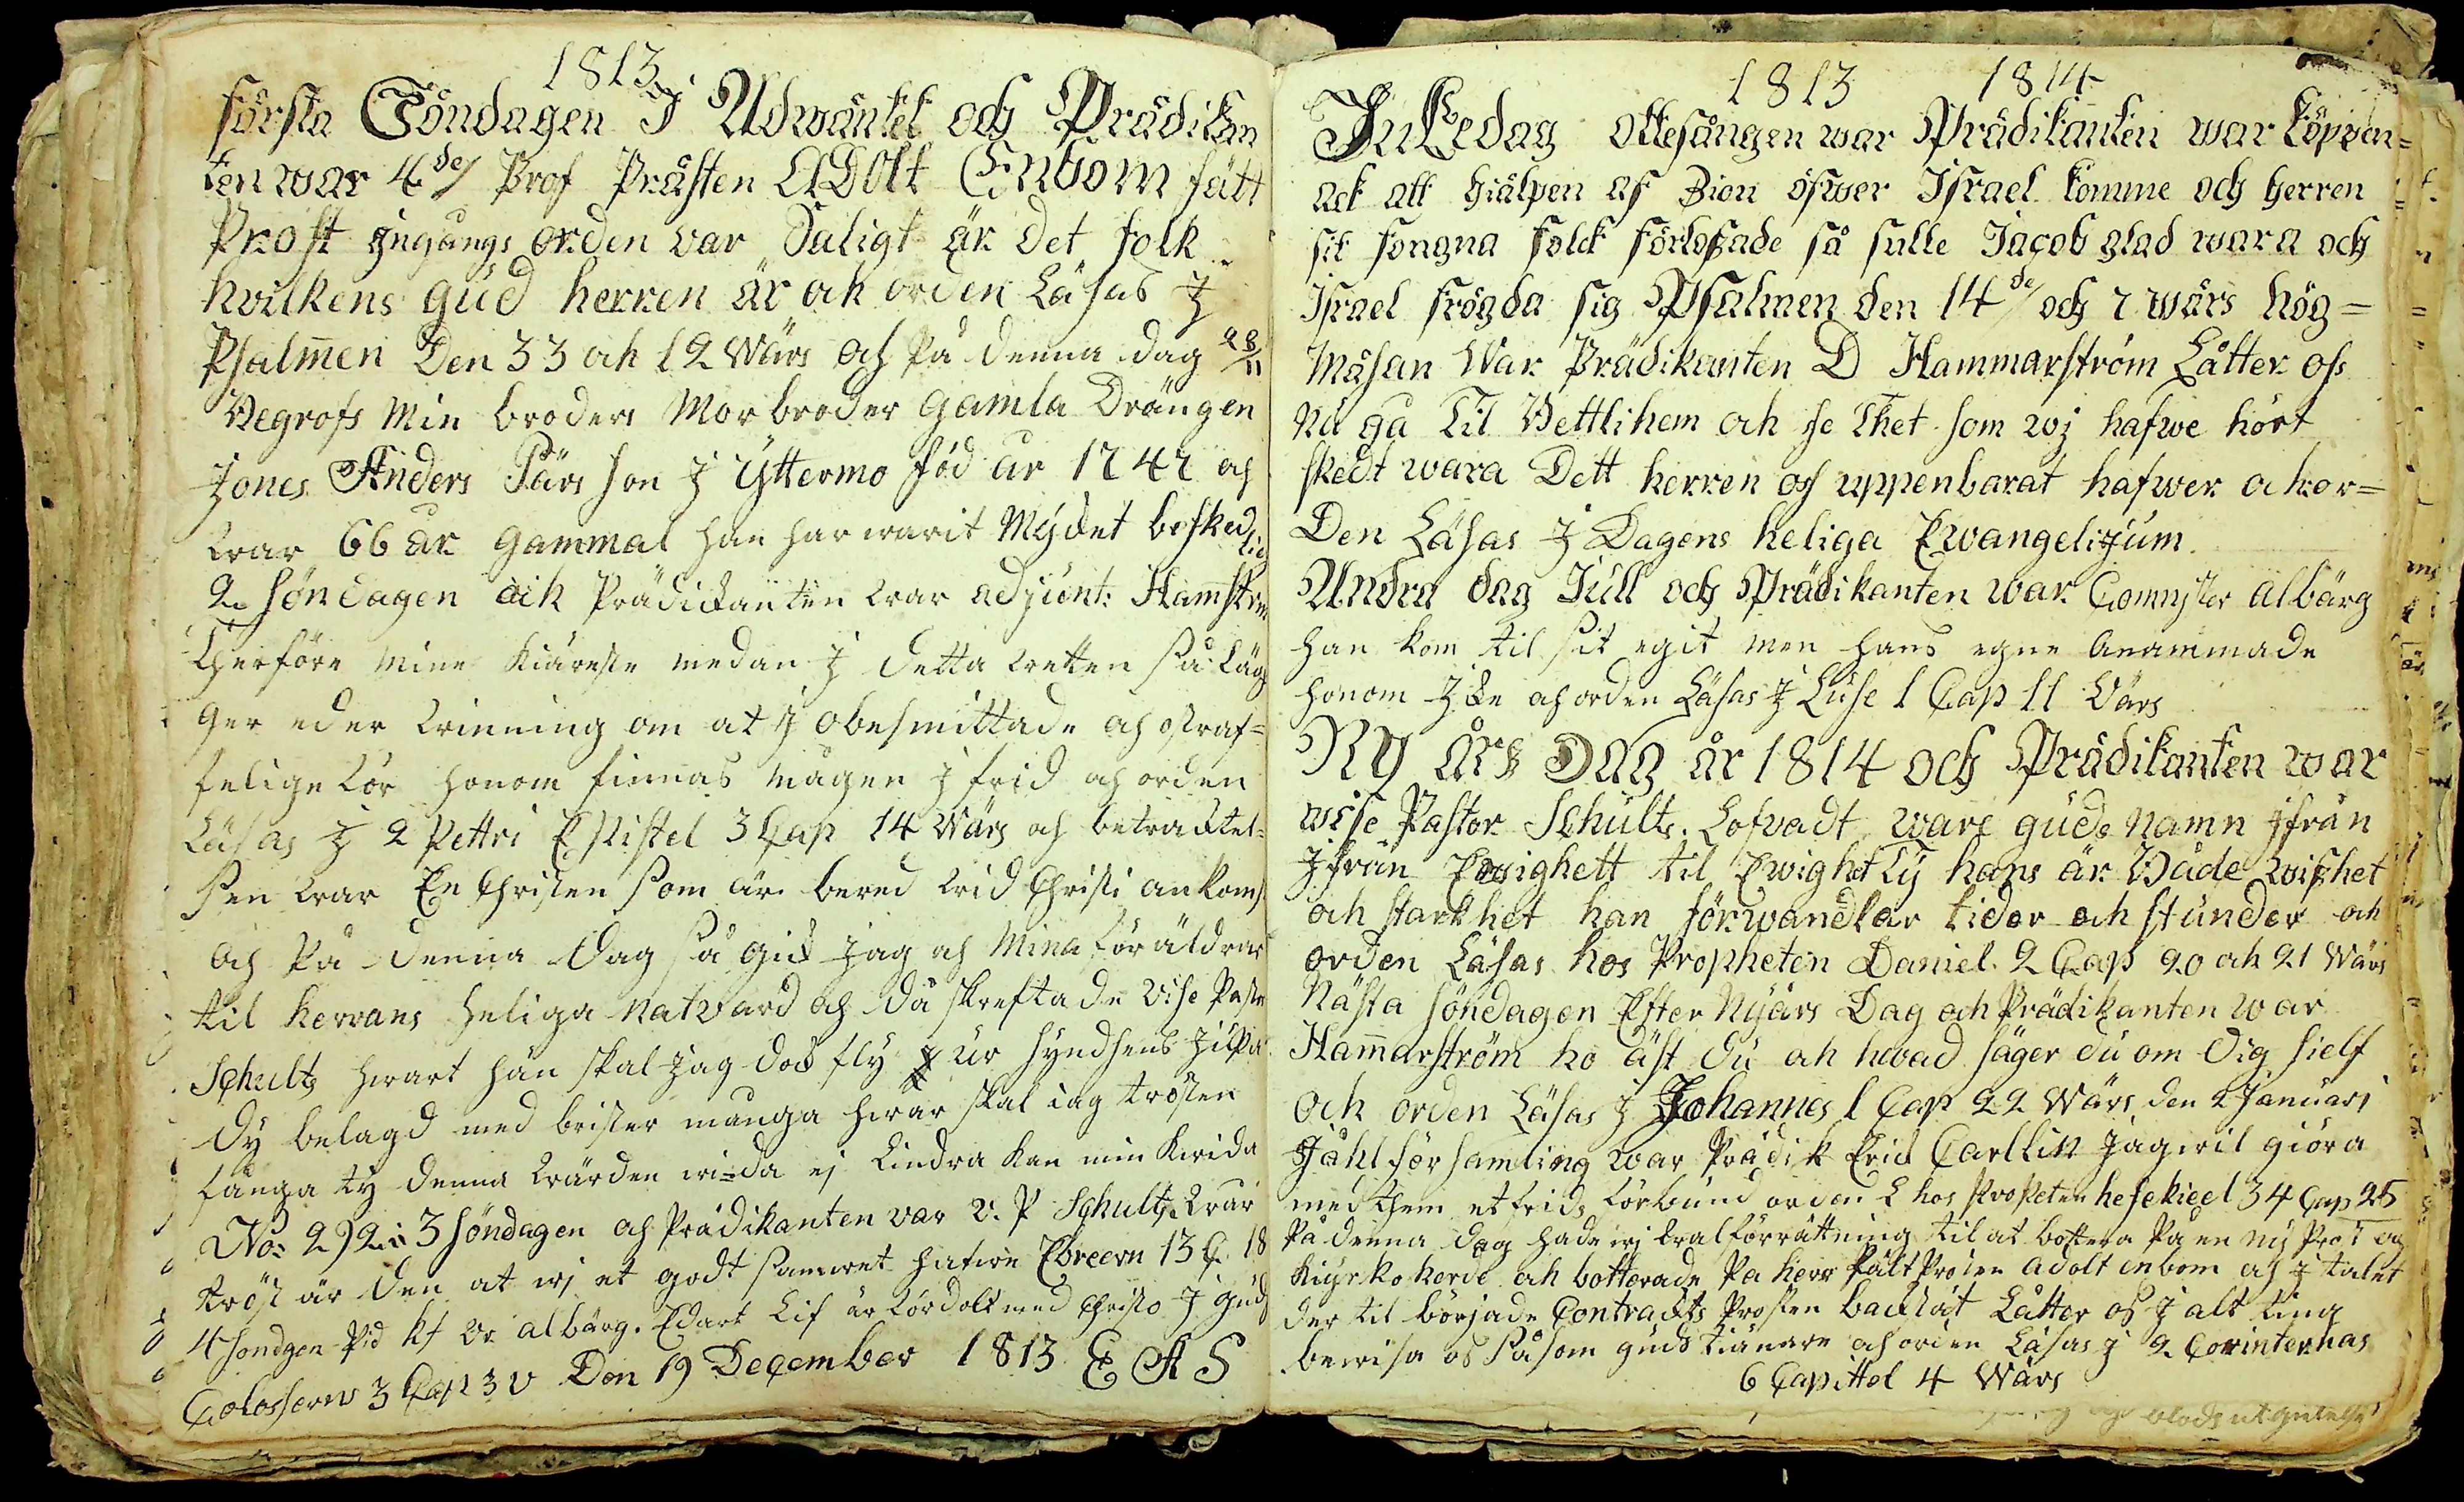 1813
första Söndagen I Adwäntet och Prädikan
ten war 4de/ Prof Prästen ADOlt Enbom fält
Prost jngångs orden var Saligt är det folk
hvilkens gud herren är och orden Läsas J
Psalmen Den 33 och 12 Wärs och På denna dag 28/11
Begrofs Min broders Morbroder gamla Drängen
Jones Anders Pärs son J Yttermo född år 1747 och
war 66 år gammal han har warit Mycket beskedlig
2. söndagen ock Prädickanten war adjunt: Hammström
Therföre mine kiäreste medan J detta wetten så läg
ger eder winning om at J obesmittade och ostraf=
felige för honom finnas mågen J frid och orden
Läsas J 2 Pettri Epistel 3 Cap 14 Wärs och betracktel=
sen war En Christen som är bered wid Christi ankomst
och På denna Dag så gick jag och Mina föräldrar
til herrans heliga natvard och då skreftade Vise Pastor
Schultz hwart hän skal jag doch fly J ur syndsens
dy belagd med brister många hwar skal iag trösten
fånga ty denna wärden wida ej lindra kan min kwida
No: 2) 2: 3 söndagen och Prädikanten var v. P Schultz wår
tröst är den at wj et godt samwet hafwe Ebreern 13 C. 18
4 sondgen Pid kf vr albärg. Edart Lif är fördolt med Christo J gud
Colosserns 3 Cap 3 v Den 19 December 1813 E A S
1813 1814
JuLedag ottesången war Prädikanten war köppen=
ack att hiälpen af Zion öfwer Israel komme och herren
sit fongna folck förloszade så sulle Jacob glad wara och
Israel frögda sig Psalmen den 14de/ och 7 wärs hög=
mäsan War Prädikanten D Hammarström Låtter oss
nu gå Til Bettlihem och se Thet som wj hafwe hört
skedt wara Dett herren oss uppenbarat hafwer och or=
Den Läsas J Dagens heliga Ewangelijum.
Andra dag Jull och Prädikanten war Comnister albärg
han kom til sit egit men hans egne anammade
honom Jcke och orden Läsas J Luse 1 Cap 11 Värs
Ny års DAg år 1814 och Prädikanten war
wise Pastor Schults. Lofvadt ware guds namn jfrån
jfrån Ewighett til Ewighet Ty hans är Både wishet
och starkhet han förwandlar tider och stunder och
orden Läsas hos Propheten Daniel 2 Cap 20 och 21 Wärs
Nästa söndagen Efter Nyårs Dag och Prädikanten war
Hammarström ho äst du och hwad säger du om dig sielf
och orden Läsas J Johannes 1 Cap 22 Wärs den 2 Januari
Jåhl församling war Prädik Erick Carllin jag wil giöra
med them et frids förbund orden L hos Propeten hesekieel 34 Cap 25
På denna dag hade wj walförrättning til at bottera På en ny Prost och
kiyrkoherde och botterade På herr Fält Prosten Adolt enbom och J talet
der til började Contrackts Prosten backlöt Låtter os J alt ting
bewisa os såsom guds tiänare och orden Läsas J 2 Corinternas
6 Capittel 4 Wärs
blods utgutelse